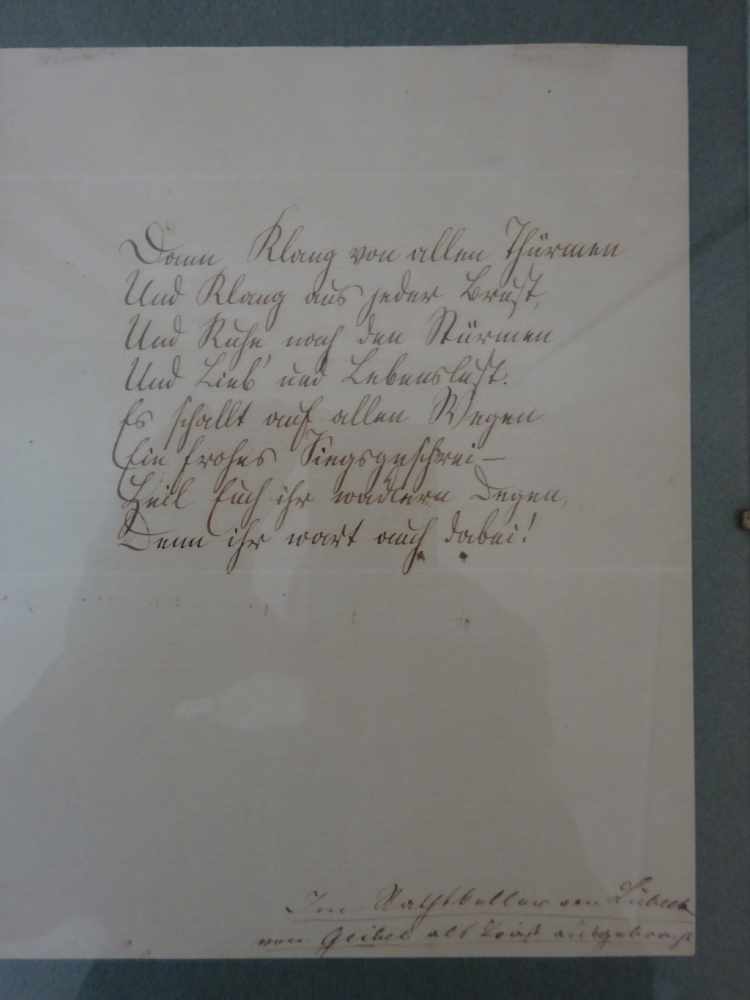 Dann Klang von allen Thürmen
Und Klang aus jeder Brust,
Und Ruhe nach den Stürmen
Und Lieb' und Lebenslust.
Es schallt auf allen Wegen
Ein frohes Siegsgeschrei –
Heil Euch ihr wackern Degen,
Denn ihr wart auch dabei!
Im Rathskeller von Lübeck
von Geibel als Toast ausgebracht